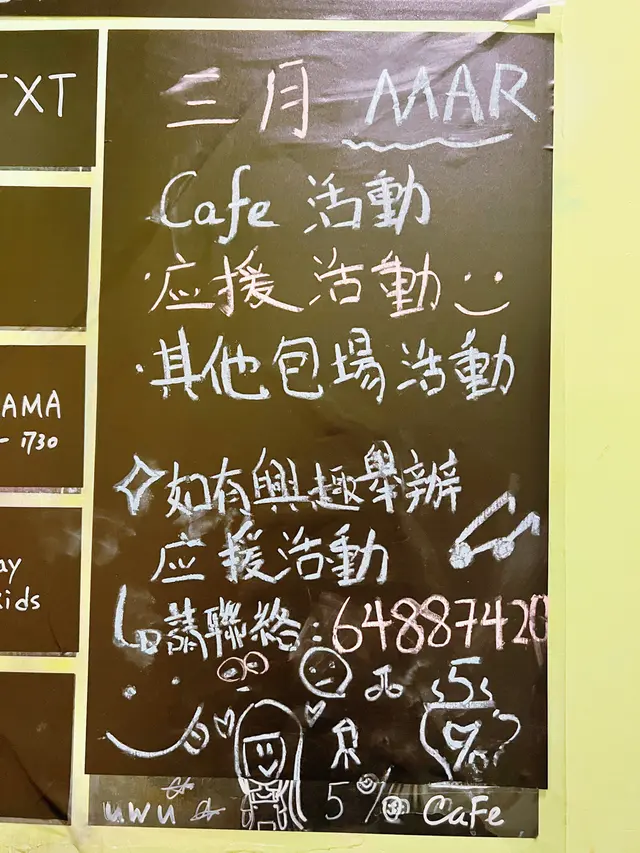 TXT
AMA
- 1730
ay
kids
三月 MAR
Cafe 活動
·应援 活動
·其他包場活動
如有興趣舉辦
应援活動
請聯絡:64887420
5%
uwu
5% Cafe